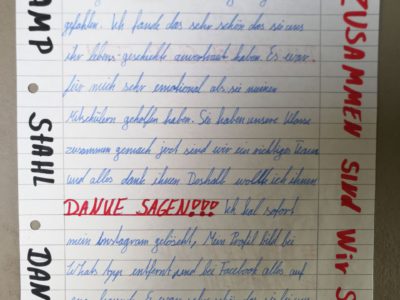 gefahlen. Ich fande das sehr schön das sie uns
ihr lebens geschichte anvertraut haben. Es war
für mich sehr emotional als sie meinen
Mitschülern geholfen haben. Sie haben unsere Klasse
zusammen gemach jezt sind wir ein richtiges Team
und alles dank ihnen Deshalb wollte ich ihnen
DANKE SAGEN!!! Ich hab sofort
mein Instagram gelöscht, Mein Profil bild bei
Whats App entfernt und bei Facebook alles auf
AMP STAHL DAN
ZUSAMMEN SIND WIR S